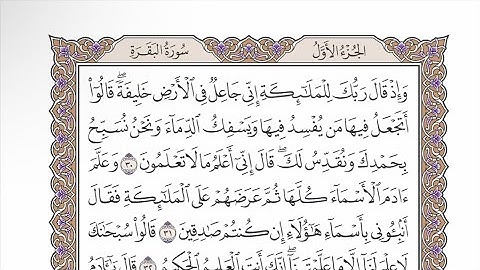 الجُزْءُ الأَوَّلُ
سُورَةُ البَقَرَةِ
وَإِذْ قَالَ رَبُّكَ لِلْمَلَٰٓئِكَةِ إِنِّي جَاعِلٌ فِي ٱلْأَرْضِ خَلِيفَةً ۖ قَالُوٓا۟
أَتَجْعَلُ فِيهَا مَن يُفْسِدُ فِيهَا وَيَسْفِكُ ٱلدِّمَآءَ وَنَحْنُ نُسَبِّحُ
بِحَمْدِكَ وَنُقَدِّسُ لَكَ ۖ قَالَ إِنِّيٓ أَعْلَمُ مَا لَا تَعْلَمُونَ ٣٠ وَعَلَّمَ
ءَادَمَ ٱلْأَسْمَآءَ كُلَّهَا ثُمَّ عَرَضَهُمْ عَلَى ٱلْمَلَٰٓئِكَةِ فَقَالَ
أَنۢبِـُٔونِي بِأَسْمَآءِ هَٰٓؤُلَآءِ إِن كُنتُمْ صَٰدِقِينَ ٣١ قَالُوا۟ سُبْحَٰنَكَ
لَا عِلْمَ لَنَآ إِلَّا مَا عَلَّمْتَنَآ ۖ إِنَّكَ أَنتَ ٱلْعَلِيمُ ٱلْحَكِيمُ ٣٢ قَالَ يَٰٓـَٔادَمُ